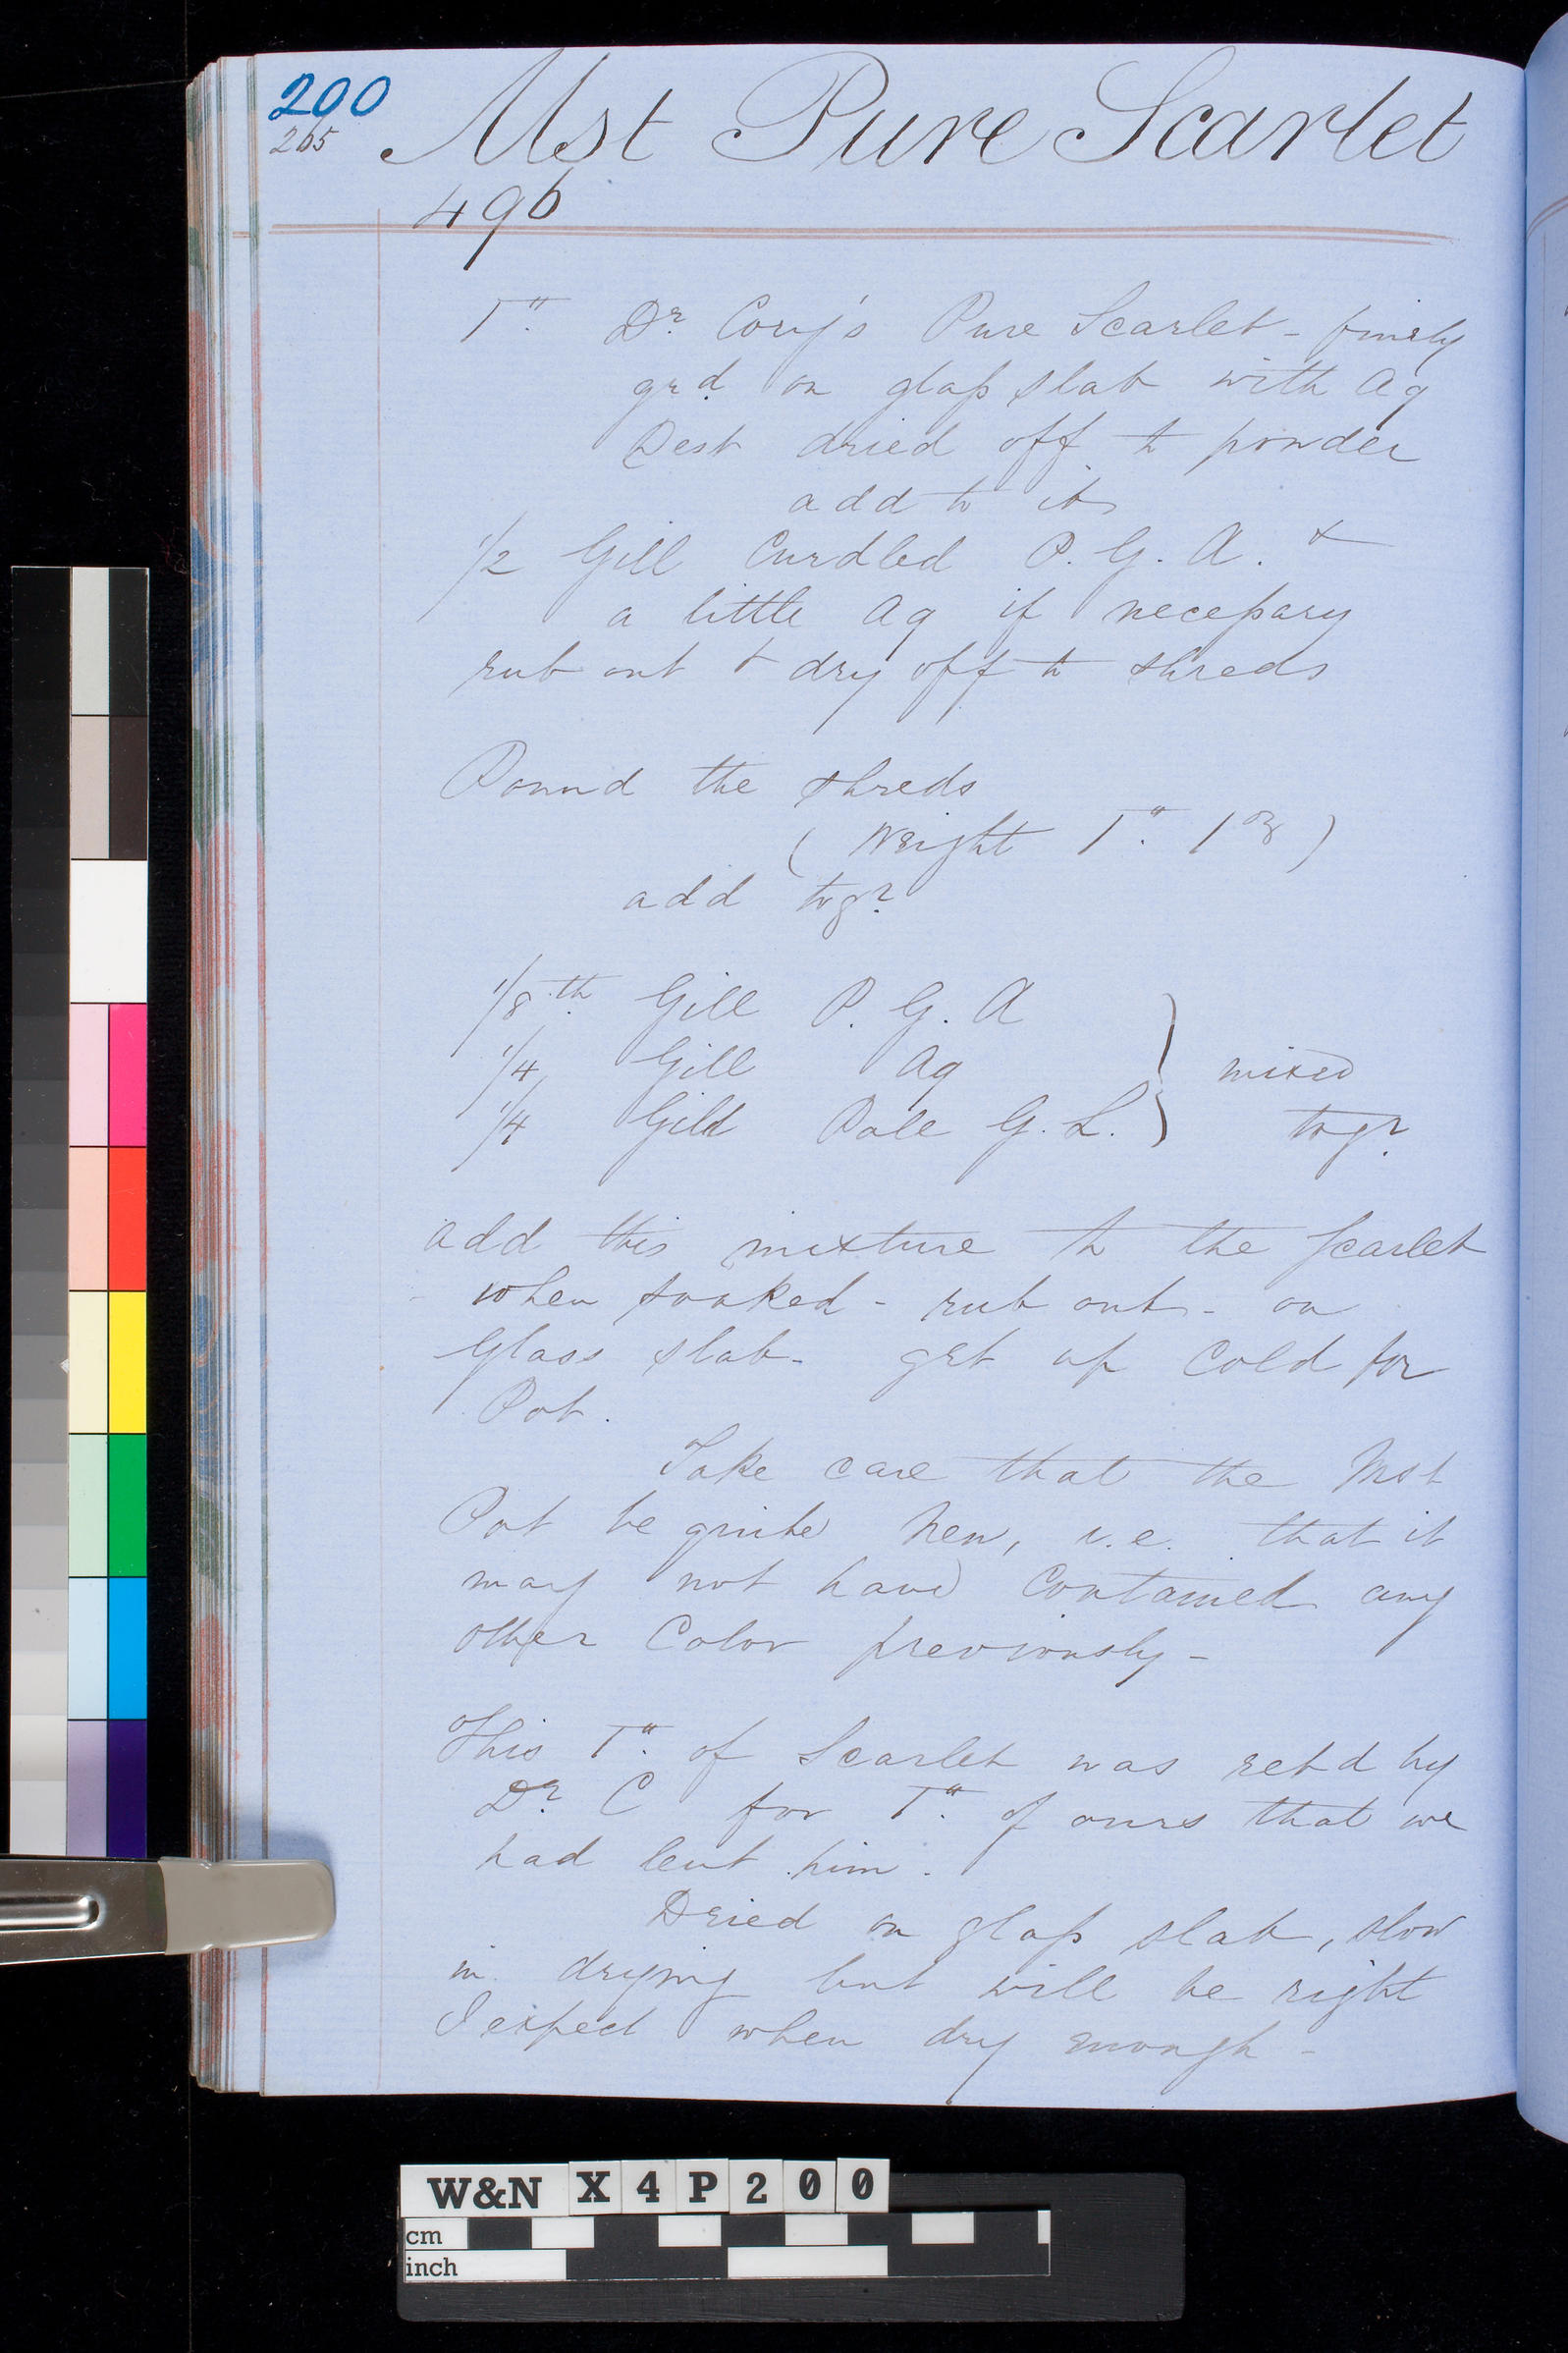 200
265
Mst Pure Scarlet
496
1".  Dr Cory's Pure Scarlet - finely
grd on glass slab with Aq
Dest dried off to powder
add to it
1/2 Gill Curdled P. G. A. &
a little Aq if necessary
rub out & dry off to shreds
Pound the shreds
( Weight 1". 1 oz )
add togr
1/8th Gill P. G. A
1/4 Gill Aq } mixed
1/4 Gill Pale G. L. } togr
add this mixture to the Scarlet
when soaked - rub out - on
Glass slab - get up Cold for
Pot.
Take care that the Mst
Pot be quite New, i.e. that it
may not have Contained any
other Color previously -
This 1". of Scarlet was retd by
Dr C for 1". of ours that we
had lent him.
Dried on glass slab, slow
in drying but will be right
I expect when dry enough -
W&N X 4 P 2 0 0
cm
inch